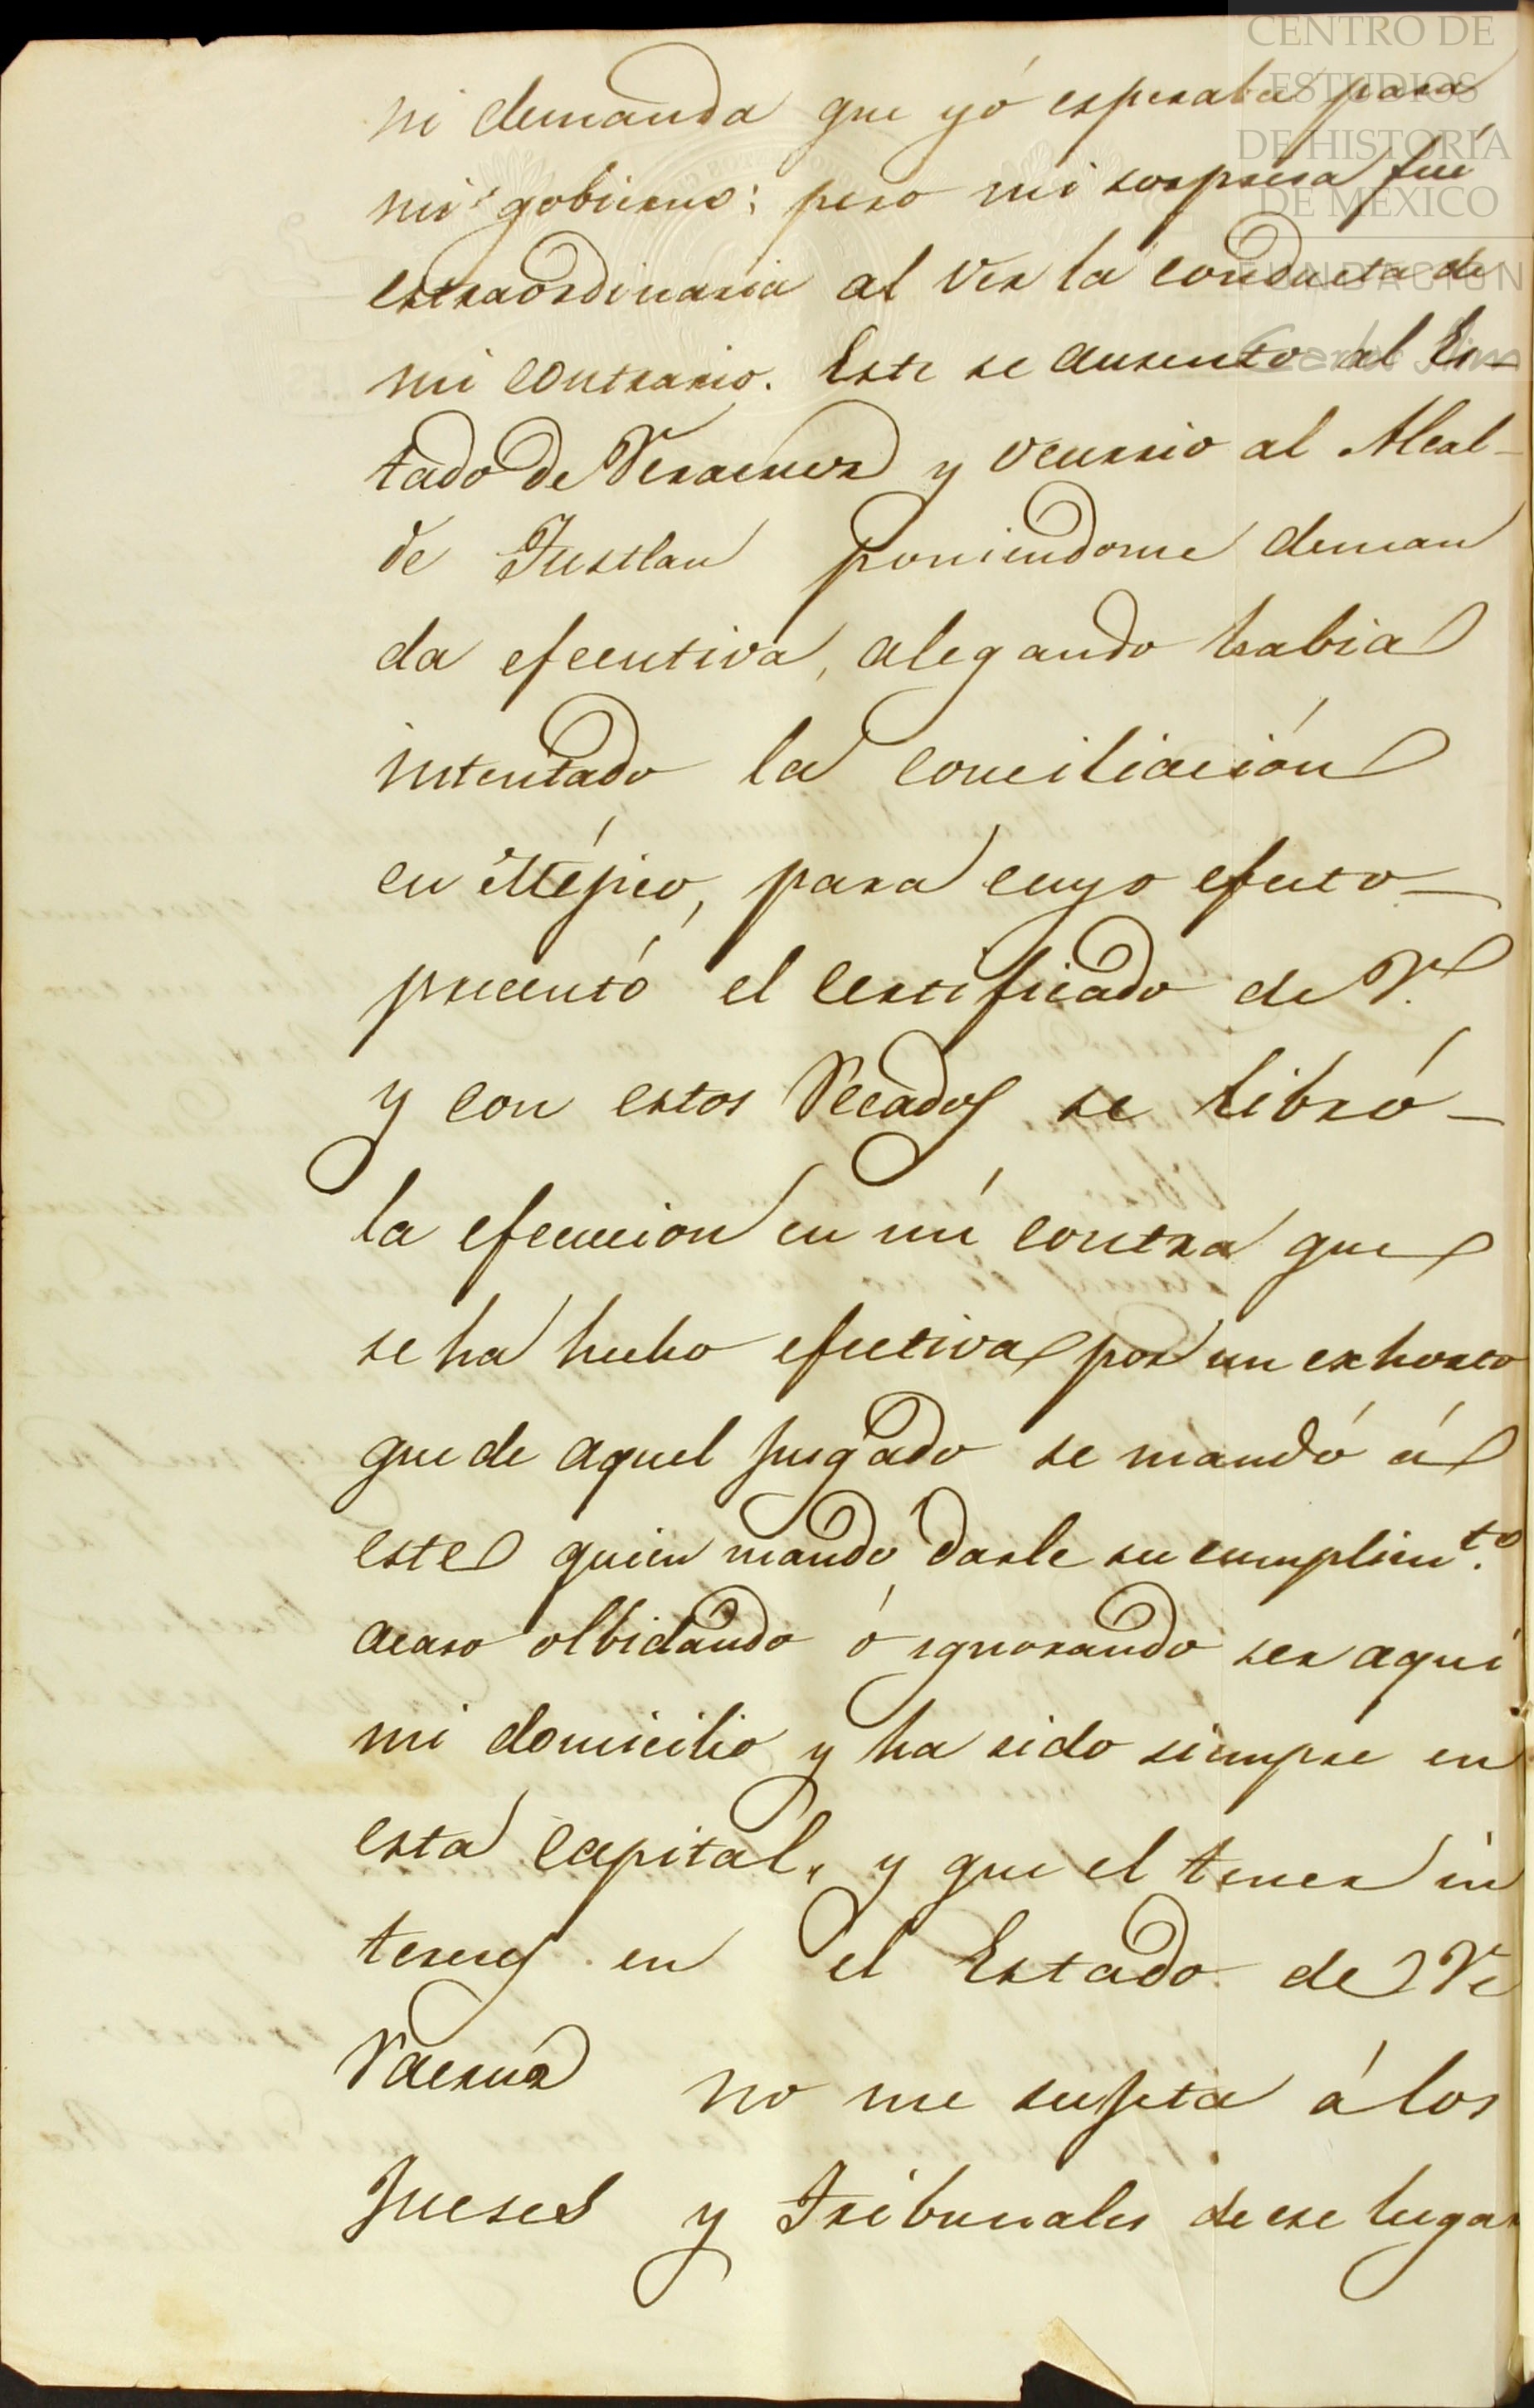 CENTRO DE
ESTUDIOS
DE HISTORIA
DE MÉXICO
FUNDACIÓN
Carlos Slim
ni demanda que yó esperaba para
mi gobierno; pero mi sorpresa fué
extraordinaria al ver la conducta de
mi contrario. Este se ausento al Es-
tado de Veracruz y ocurrio al Alcal-
de Tustlan poniendome deman
da ejecutiva, alegando habia
intentado la conciliación
en Méjico, para cuyo efecto
precentó el certificado de V.
y con estos recados se libró
la ejecucion en mi contra que
se ha hecho efectiva por un exhorto
que de aquel Jusgado se mandó á
este quien mandó darle su cumplim.to
acaso olbidando ó ignorando ser aqui
mi domicilio y ha sido siempre en
esta capital, y que el tener in
tereses en el Estado de Ve
racruz no me sujeta á los
Jueses y Tribunales de ese lugar